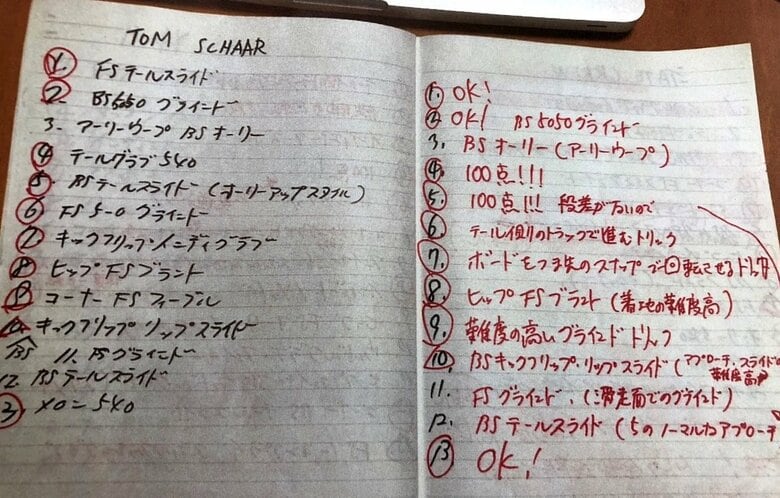 TOM SCHAAR
1. FSテールスライド
2. BS5050 グラインド
3. アーリーウープ BSオーリー
4 テールグラブ540
5 BSテールスライド (オーリーアップスタイル)
6 FS 5-0 グラインド
7 キックフリップインディグラブ
8 ヒップFSブラント
9 コーナーFSフィーブル
10 キックフリップ リップスライド
BS 11. FSグラインド
12. BSテールスライド
13, 540
1. OK!
2. OK! BS 5050グラインド
3. BSオーリー(アーリーウープ)
4. 100点!!!
5. 100点!!! 段差が
6. テール側のトラックで進むトリック
7. ボードをつま先のスナップで回転させるトリック
8. ヒップFSブラント (着地の難度高)
9. 難度の高いグラインドトリック
10. BSキックフリップ・リップスライド (アプローチ、スライドの
難度高
11. FSグラインド. (滑走面でのグラインド)
12. BSテールスライド (5のノーマルなアプローチ
13 OK!